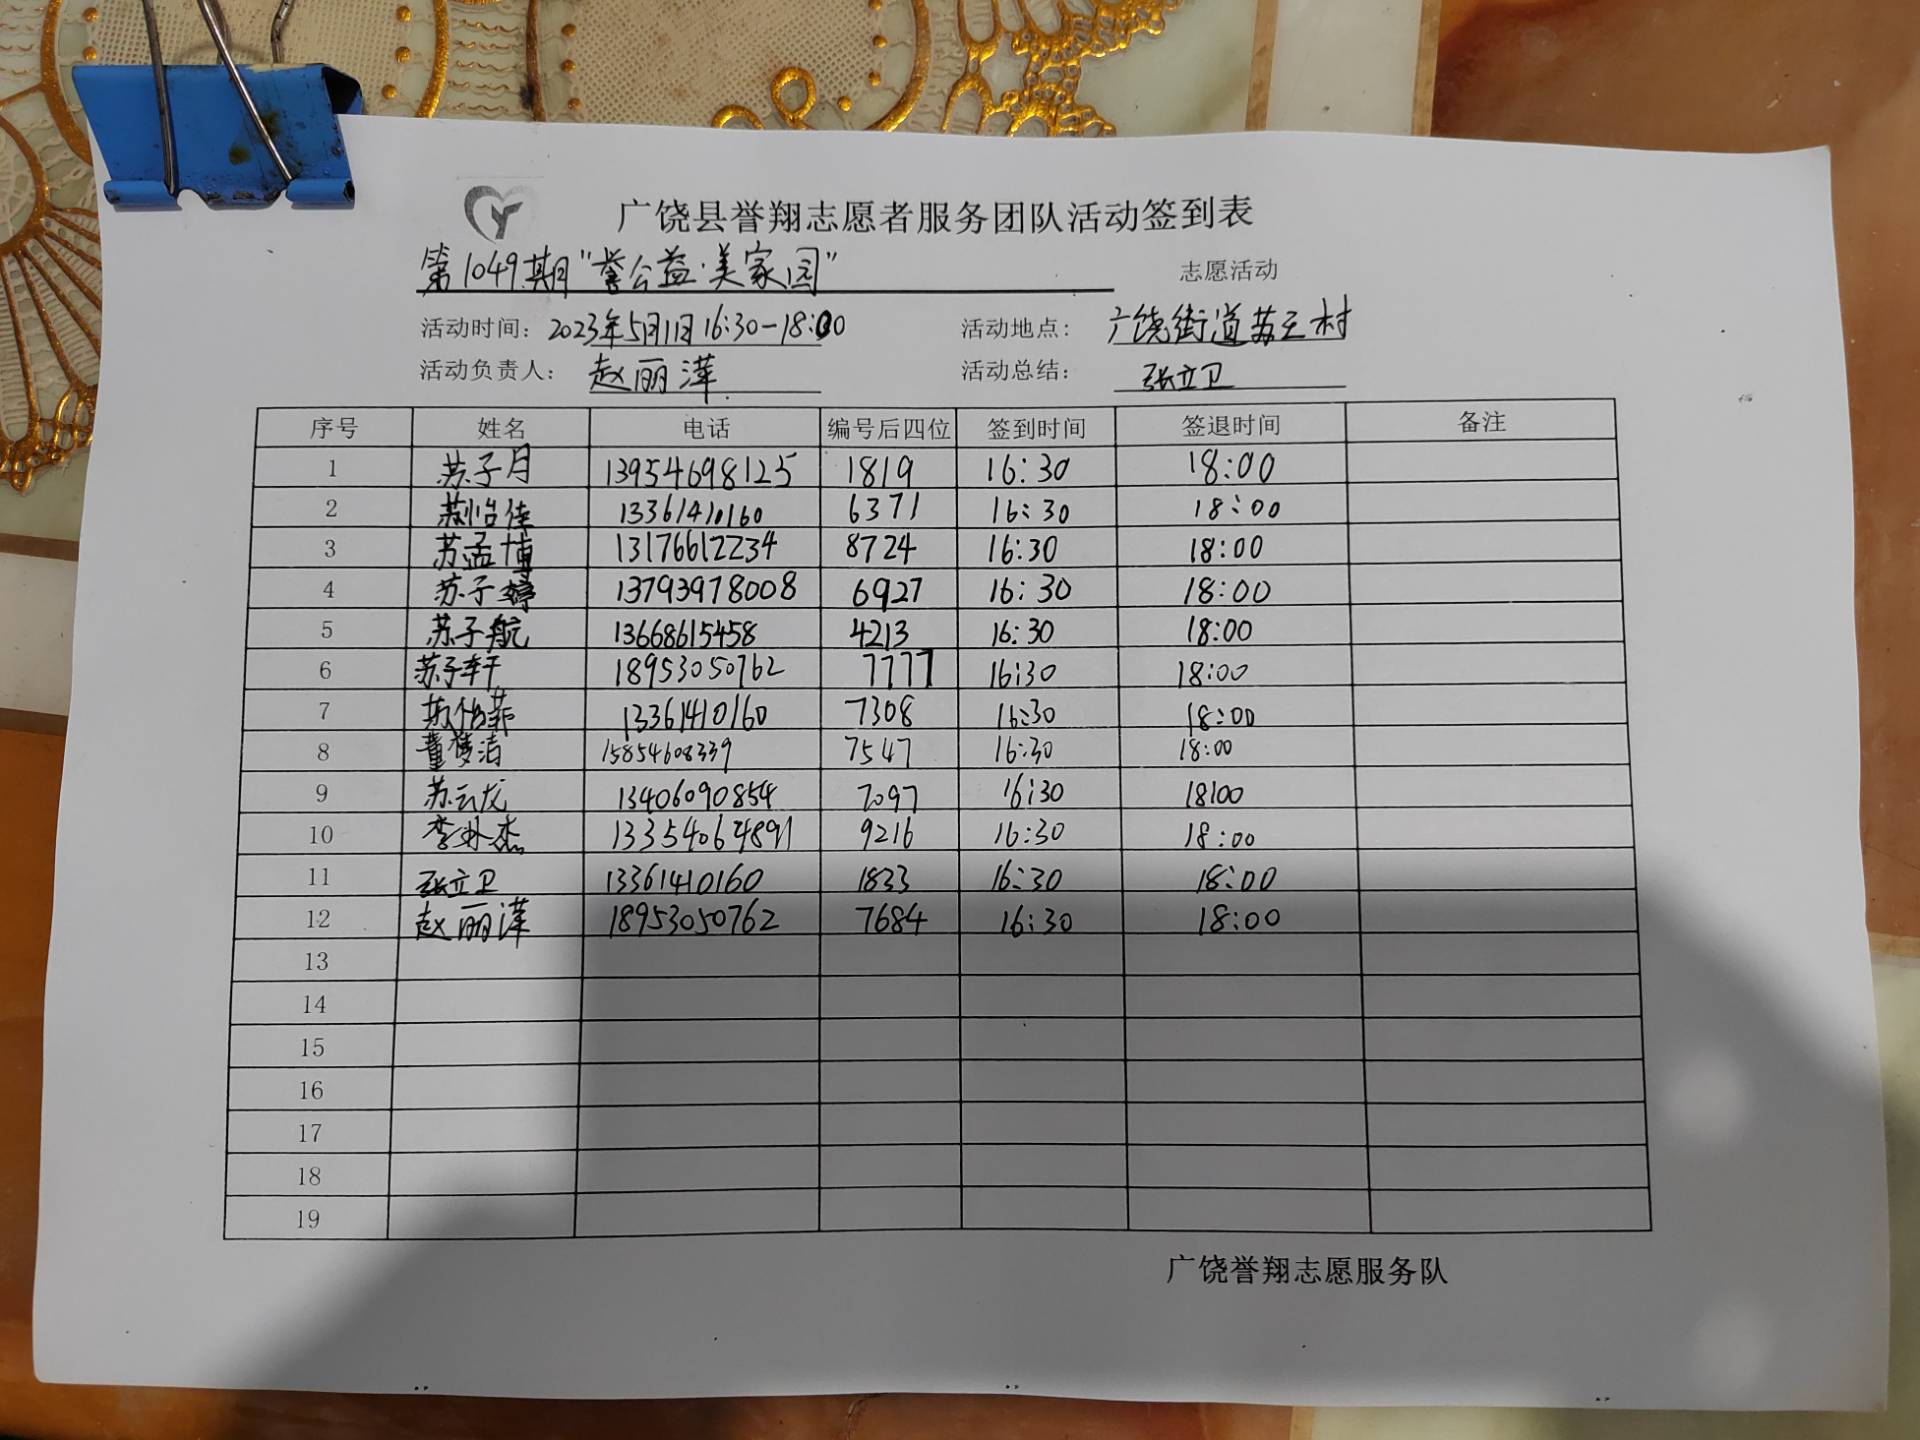 广饶县誉翔志愿者服务团队活动签到表
第1049期"誉公益·美家园" 志愿活动
活动时间：2023年5月1日16:30-18:00 活动地点：广饶街道苏王村
活动负责人：赵丽萍 活动总结：张立卫
序号 姓名 电话 编号后四位 签到时间 签退时间 备注
1 苏子月 13954698125 1819 16:30 18:00
2 13361410160 6371 16:30 18:00
3 苏孟博 13176612234 8724 16:30 18:00
4 苏子婷 13793978008 6927 16:30 18:00
5 苏子航 13668615458 4213 16:30 18:00
6 苏子轩 18953050762 7777 16:30 18:00
7 苏怡菲 13361410160 7308 16:30 18:00
8 15854608339 7547 16:30 18:00
9 苏云龙 13406090854 7097 16:30 18:00
10 13354064891 9216 16:30 18:00
11 张立卫 13361410160 1833 16:30 18:00
12 赵丽萍 18953050762 7684 16:30 18:00
13
14
15
16
17
18
19
广饶誉翔志愿服务队